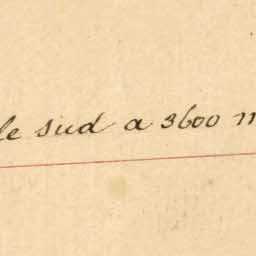 le sud a 3600 m